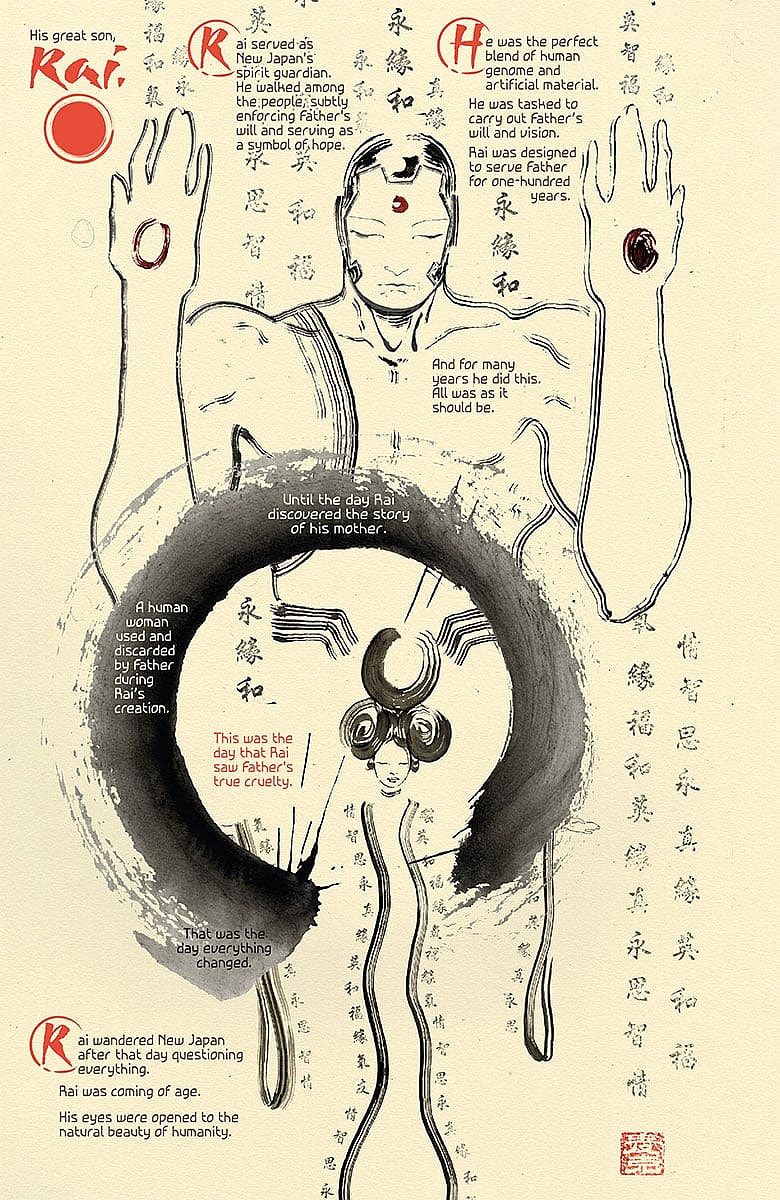 His great son,
Rai.
Rai served as
New Japan's
spirit guardian.
He walked among
the people, subtly
enforcing Father's
will and serving as
a symbol of hope.
He was the perfect
blend of human
genome and
artificial material.
He was tasked to
carry out Father's
will and vision.
Rai was designed
to serve Father
for one-hundred
years.
永緣和
英智福
緣和
永思智情
英和福
永緣和
And for many
years he did this.
All was as it
should be.
Until the day Rai
discovered the story
of his mother.
A human
woman
used and
discarded
by Father
during
Rai's
creation.
永緣和
This was the
day that Rai
saw Father's
true cruelty.
That was the
day everything
changed.
情智思永真緣英和福
氣緣福和英緣真永思智情
情智思永真緣英和福緣氣
真永思智情
Rai wandered New Japan
after that day questioning
everything.
Rai was coming of age.
His eyes were opened to the
natural beauty of humanity.